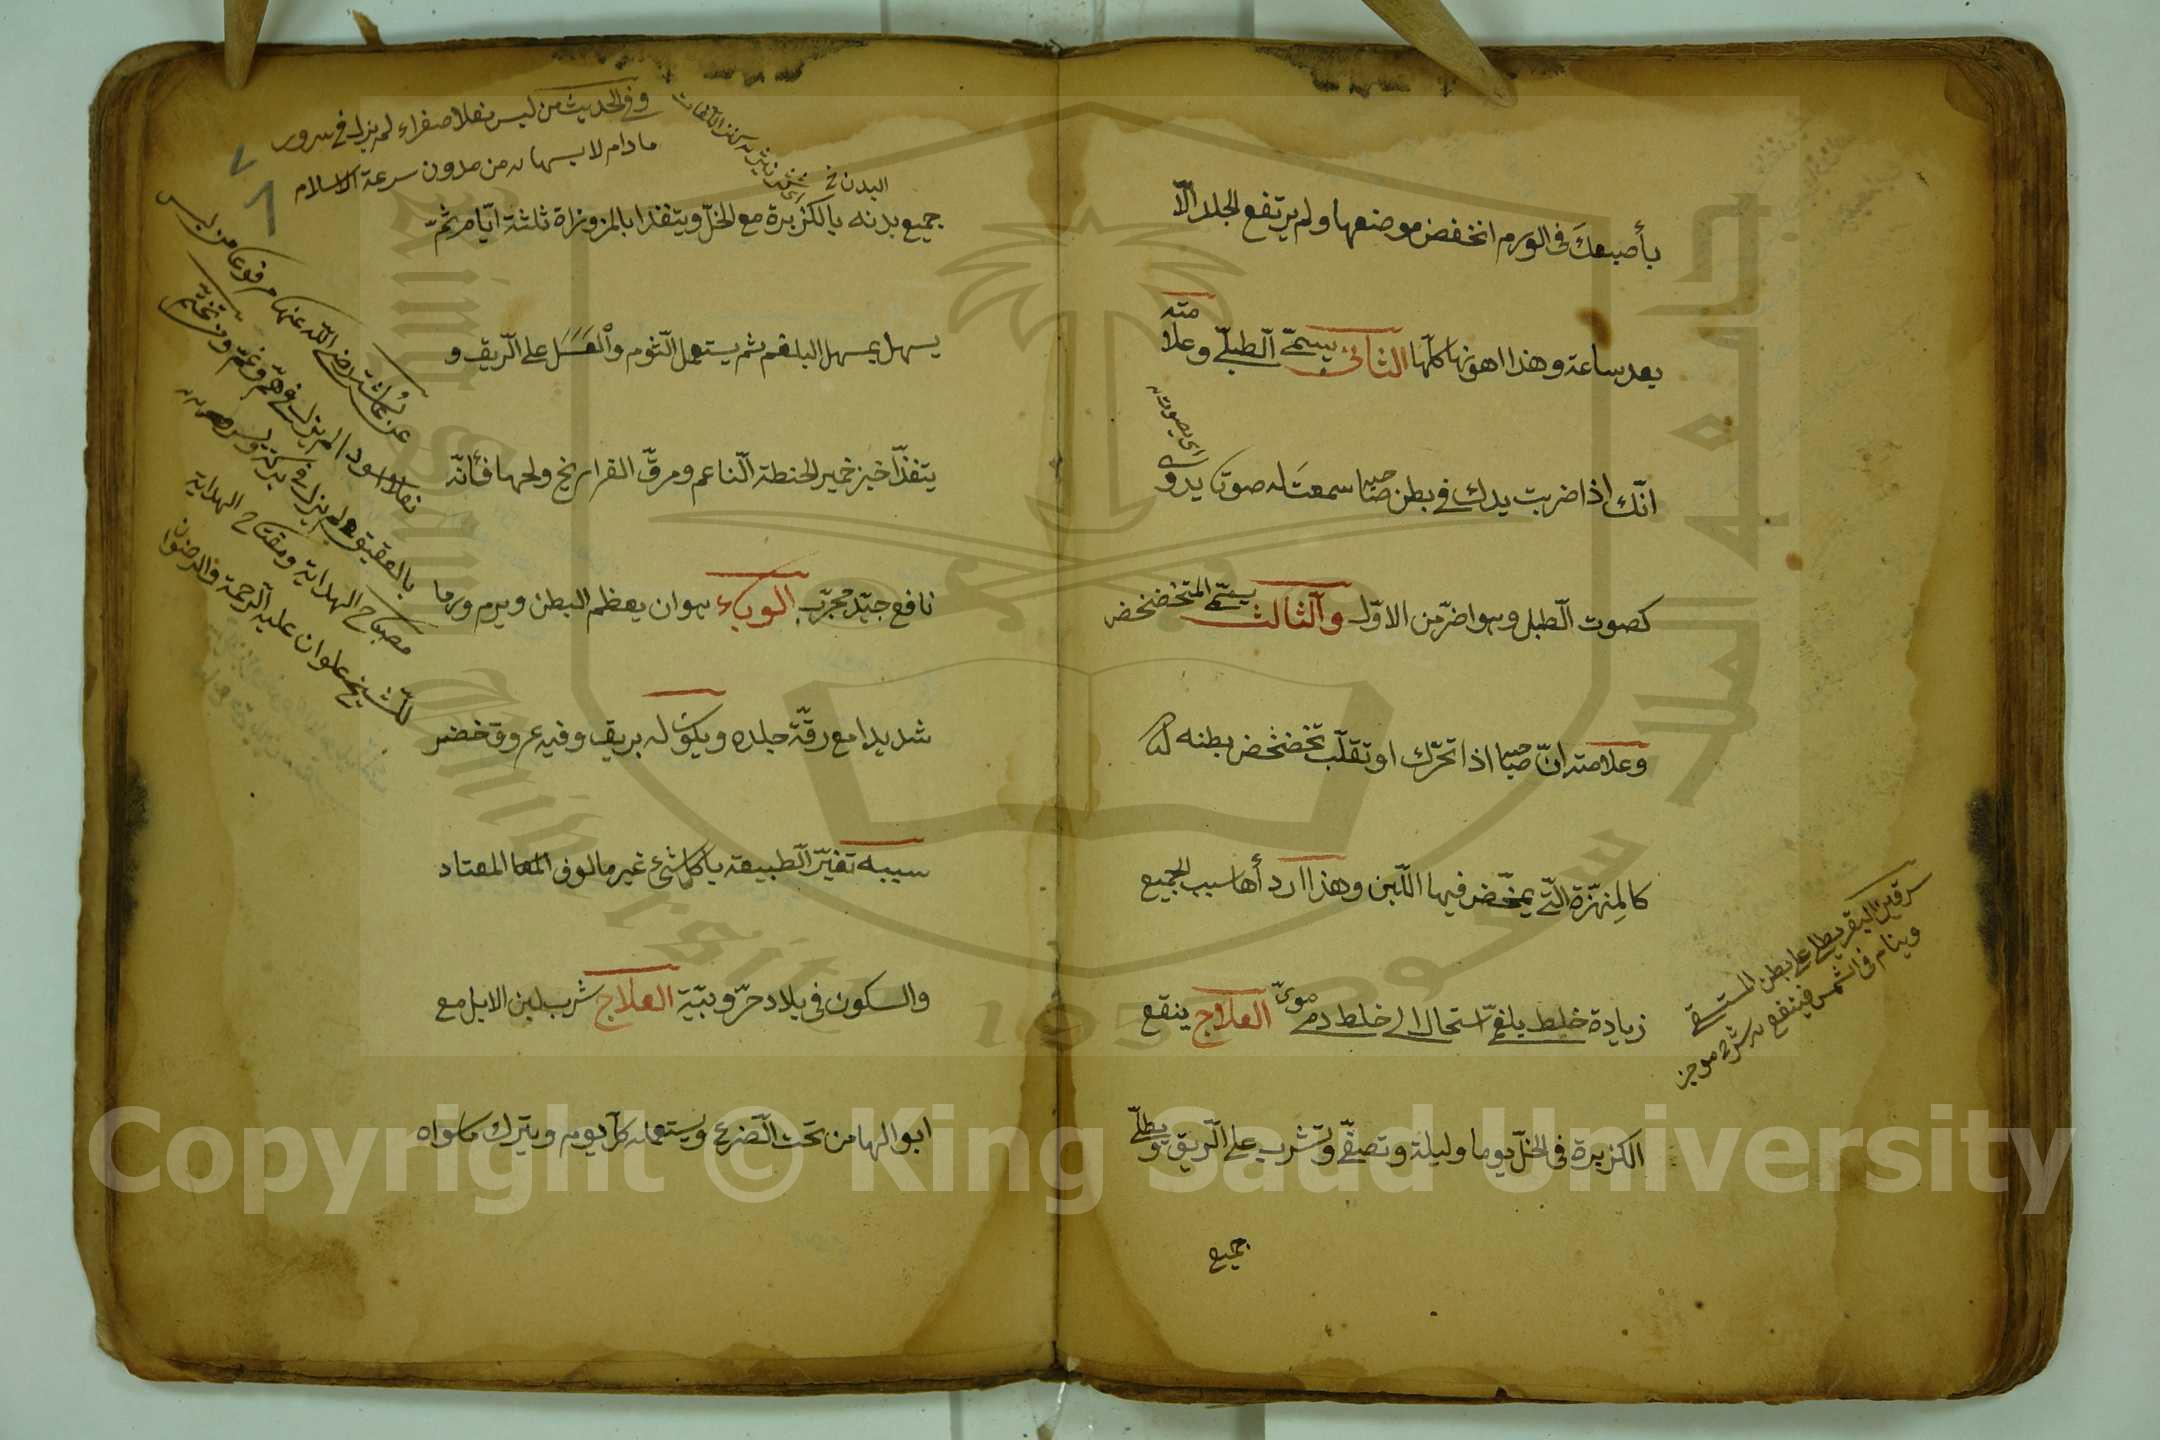 بأصبعك فى الورم انخفض موضعها ولم يرتفع الجلد الّا
بعد ساعة وهذا اهونها كلّها الثانى يسمّى الطبلّى وعلا
مته
انّك اذا ضربت يدك فى بطن صاحبه سمعت له صوتا يدوى
اى يصوت
كصوت الطبل وهو اضرّ من الاوّل والثالث يسمّى المتخضخض
وعلامته انّ صاحبها اذا تحرّك او تقلّب تخضخض بطنه
كالمنهزة التى يمخّض فيها اللبن وهذا اردأها سبب الجميع
زيادة خلط بلغمىّ استحال الى خلط دموىّ العلاج ينقع
الكزبرة فى الخلّ يوما وليلة وتصفّى وتشرب على الريق ويطلّى
جميع
سرقين البقر يطلى على بطن المستسقى
وينام فى الشمس فينتفع به شرح موجز
وفى الحديث من لبس نعلا صفراء لم يزل فى سرور
مادام لابسها
جميع بدنه بالكزبرة مع الخلّ ويتغذا بالمزوزاة ثلثة ايّام ثمّ
يسهل بمسهل البلغم ثم يستعمل الثوم والعسل على الريق و
يتغذّا خبز خمير الحنطة الناعم ومرق الفراريخ ولحمها فأنّه
نافع جيّد مجرّب الوباء هو ان يعظم البطن ويرم ورما
شديدا مع رقّة جلده ويكون له بريق وفيه عروق خضر
سببه تغيّر الطبيعة باكل شئ غير مالوف المعتاد
والسكون فى بلاد حرّ وبيّة العلاج شرب لبن الابل مع
ابوالها من تحت الضرع ويستعمله كل يوم ويترك ماسواه
عن عائشة رضى الله عنها مرفوعا من لبس
نعلا اسود لم يزل فى همّ وغمّ ومن تختّم
بالعقيق لم يزل فى بركة
مصباح الهداية ومفتاح الهداية
للشيخ علوان عليه الرحمة والرضوان
Copyright © King Saud University
King Saud University
جامعة الملك سعود
1957